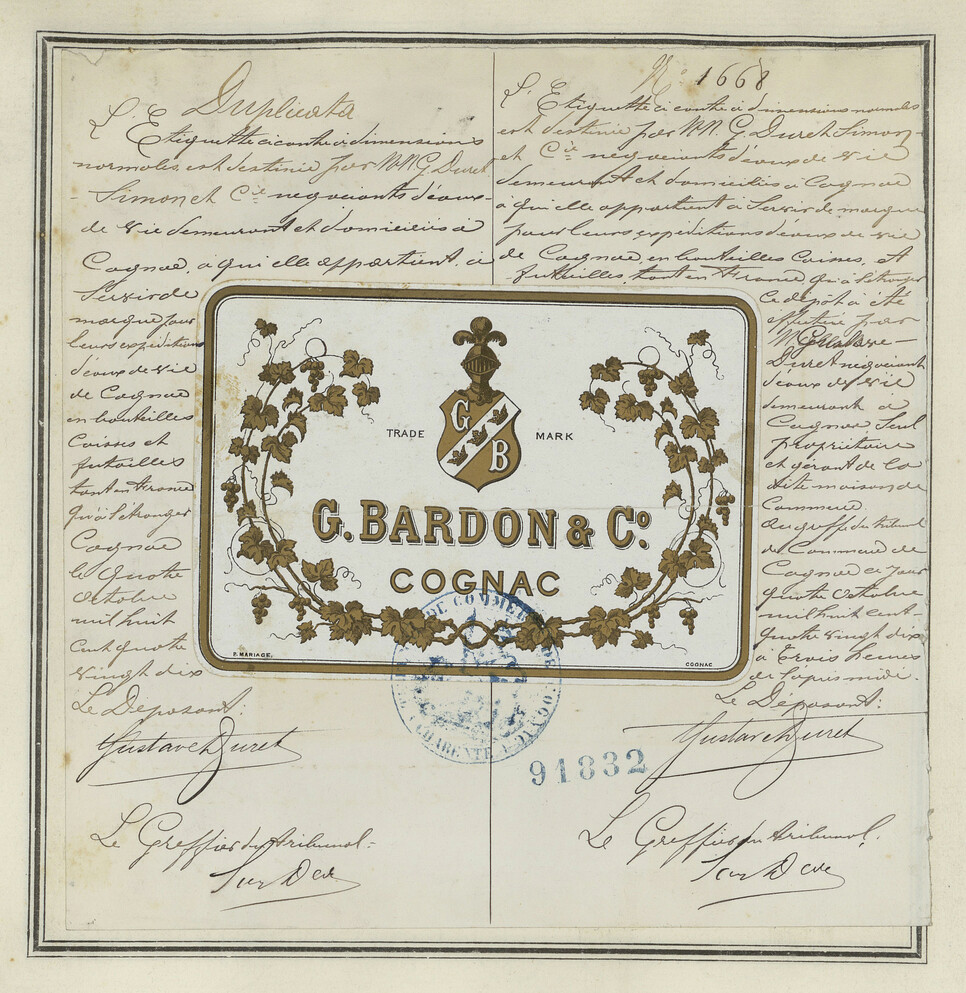 Duplicata
L'Etiquette ci contre à dimensions
normales, est destinée par MM G. Duret
Simon et Cie négociants d'eaux-
de vie demeurant et domiciliés à
Cognac, à qui elle appartient, à
Servir de
marque pour
leurs expéditions
d'eaux de vie
de Cognac
en bouteilles
Caisses et
futailles
tant en France
qu'à l'étranger
Cognac
le Quatre
Octobre
mil huit
cent quatre
vingt dix
Le Déposant:
Gustave Duret
Le Greffier du tribunal:
No 1668
L'Etiquette ci contre à dimensions normales
est destinée par MM. G. Duret Simon
et Cie négociants d'eaux de vie
demeurant et domiciliés à Cognac
à qui elle appartient à Servir de marque
pour leurs expéditions d'eaux de vie
de Cognac, en bouteilles Caisses, et
futailles, tant en France qu'à l'étranger
Ce dépôt a été
effectué par
M Gustave
Duret négociant
d'eaux de vie
demeurant à
Cognac, Seul
propriétaire
et gérant de la
dite maison de
Commerce.
Au greffe du tribunal
de Commerce de
Cognac ce jour
quatre Octobre
mil huit cent
quatre vingt dix
à trois heures
de l'après midi.
Le Déposant:
Gustave Duret
Le Greffier du tribunal:
G
B
TRADE MARK
G. BARDON & Co.
COGNAC
P. MARIAGE.
COGNAC
DE COMMERCE DE
COGNAC
CHARENTE
91832